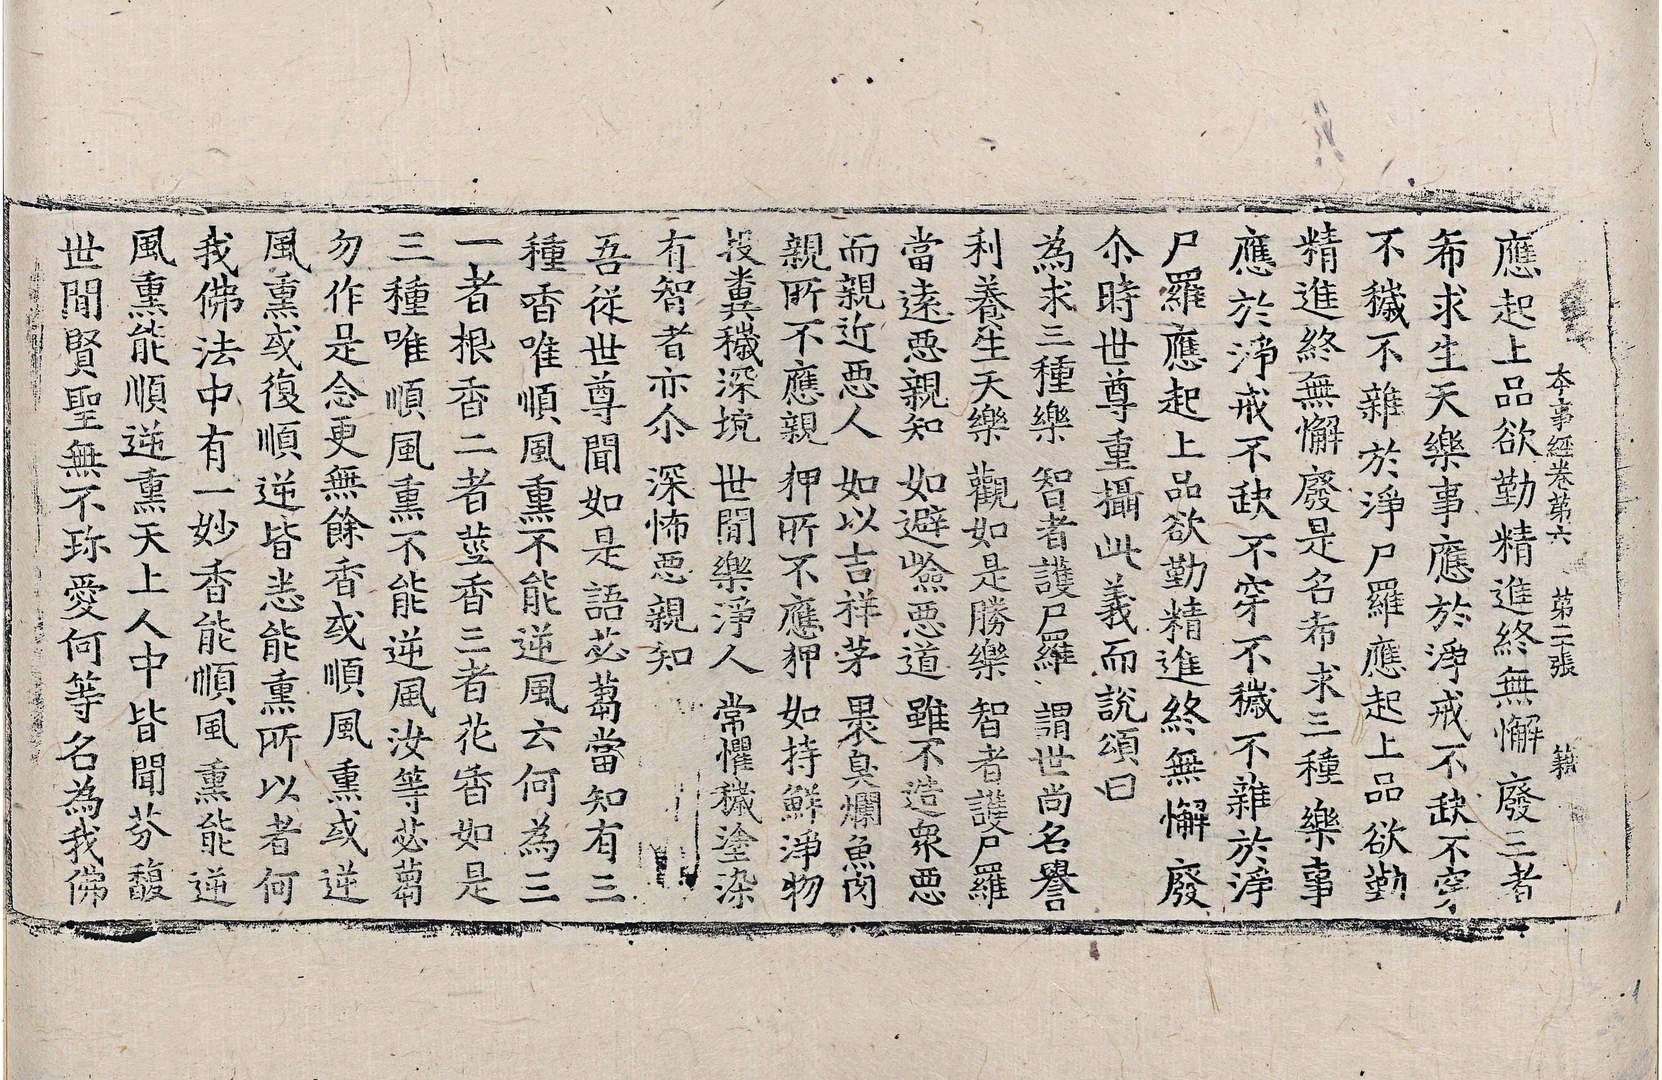 本事經卷第六　第二張　籍
應起上品欲勤精進終無懈廢三者
希求生天樂事應於淨戒不缺不穿
不穢不雜於淨尸羅應起上品欲勤
精進終無懈廢是名希求三種樂事
應於淨戒不缺不穿不穢不雜於淨
尸羅應起上品欲勤精進終無懈廢
尒時世尊重攝此義而說頌曰
為求三種樂　智者護尸羅　謂世尚名譽
利養生天樂　觀如是勝樂　智者護尸羅
當遠惡親知　如避嶮惡道　雖不造衆惡
而親近惡人　如以吉祥茅　褁臭爛魚肉
親所不應親　狎所不應狎　如持鮮淨物
投糞穢深坑　世間樂淨人　常懼穢塗染
有智者亦尒　深怖惡親知
吾從世尊聞如是語苾芻當知有三
種香唯順風熏不能逆風云何為三
一者根香二者莖香三者花香如是
三種唯順風熏不能逆風汝等苾芻
勿作是念更無餘香或順風熏或逆
風熏或復順逆皆悉能熏所以者何
我佛法中有一妙香能順風熏能逆
風熏能順逆熏天上人中皆聞芬馥
世間賢聖無不珎愛何等名為我佛